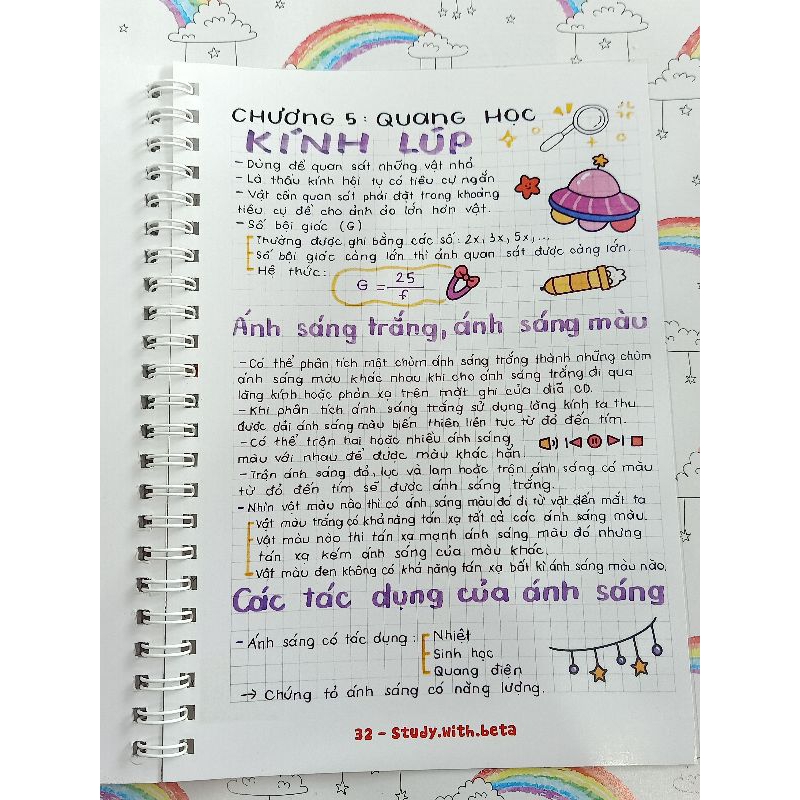 CHƯƠNG 5: QUANG HỌC
KÍNH LÚP
- Dùng để quan sát những vật nhỏ
- Là thấu kính hội tụ có tiêu cự ngắn
- Vật cần quan sát phải đặt trong khoảng
tiêu cự để cho ảnh ảo lớn hơn vật.
- Số bội giác (G)
Thường được ghi bằng các số: 2x, 3x, 5x,...
Số bội giác càng lớn thì ảnh quan sát được càng lớn.
Hệ thức: G = 25/f
Ánh sáng trắng, ánh sáng màu
- Có thể phân tích một chùm ánh sáng trắng thành những chùm
ánh sáng màu khác nhau khi cho ánh sáng trắng đi qua
lăng kính hoặc phản xạ trên mặt ghi của đĩa CD.
- Khi phân tích ánh sáng trắng sử dụng lăng kính ta thu
được dải ánh sáng màu biến thiên liên tục từ đỏ đến tím.
- Có thể trộn hai hoặc nhiều ánh sáng
màu với nhau để được màu khác hẳn.
- Trộn ánh sáng đỏ, lục và lam hoặc trộn ánh sáng có màu
từ đỏ đến tím sẽ được ánh sáng trắng.
- Nhìn vật màu nào thì có ánh sáng màu đó đi từ vật đến mắt ta
Vật màu trắng có khả năng tán xạ tất cả các ánh sáng màu.
Vật màu nào thì tán xạ mạnh ánh sáng màu đó nhưng
tán xạ kém ánh sáng của màu khác.
Vật màu đen không có khả năng tán xạ bất kì ánh sáng màu nào.
Các tác dụng của ánh sáng
- Ánh sáng có tác dụng: Nhiệt
Sinh học
Quang điện
→ Chứng tỏ ánh sáng có năng lượng.
32 - Study.with.beta